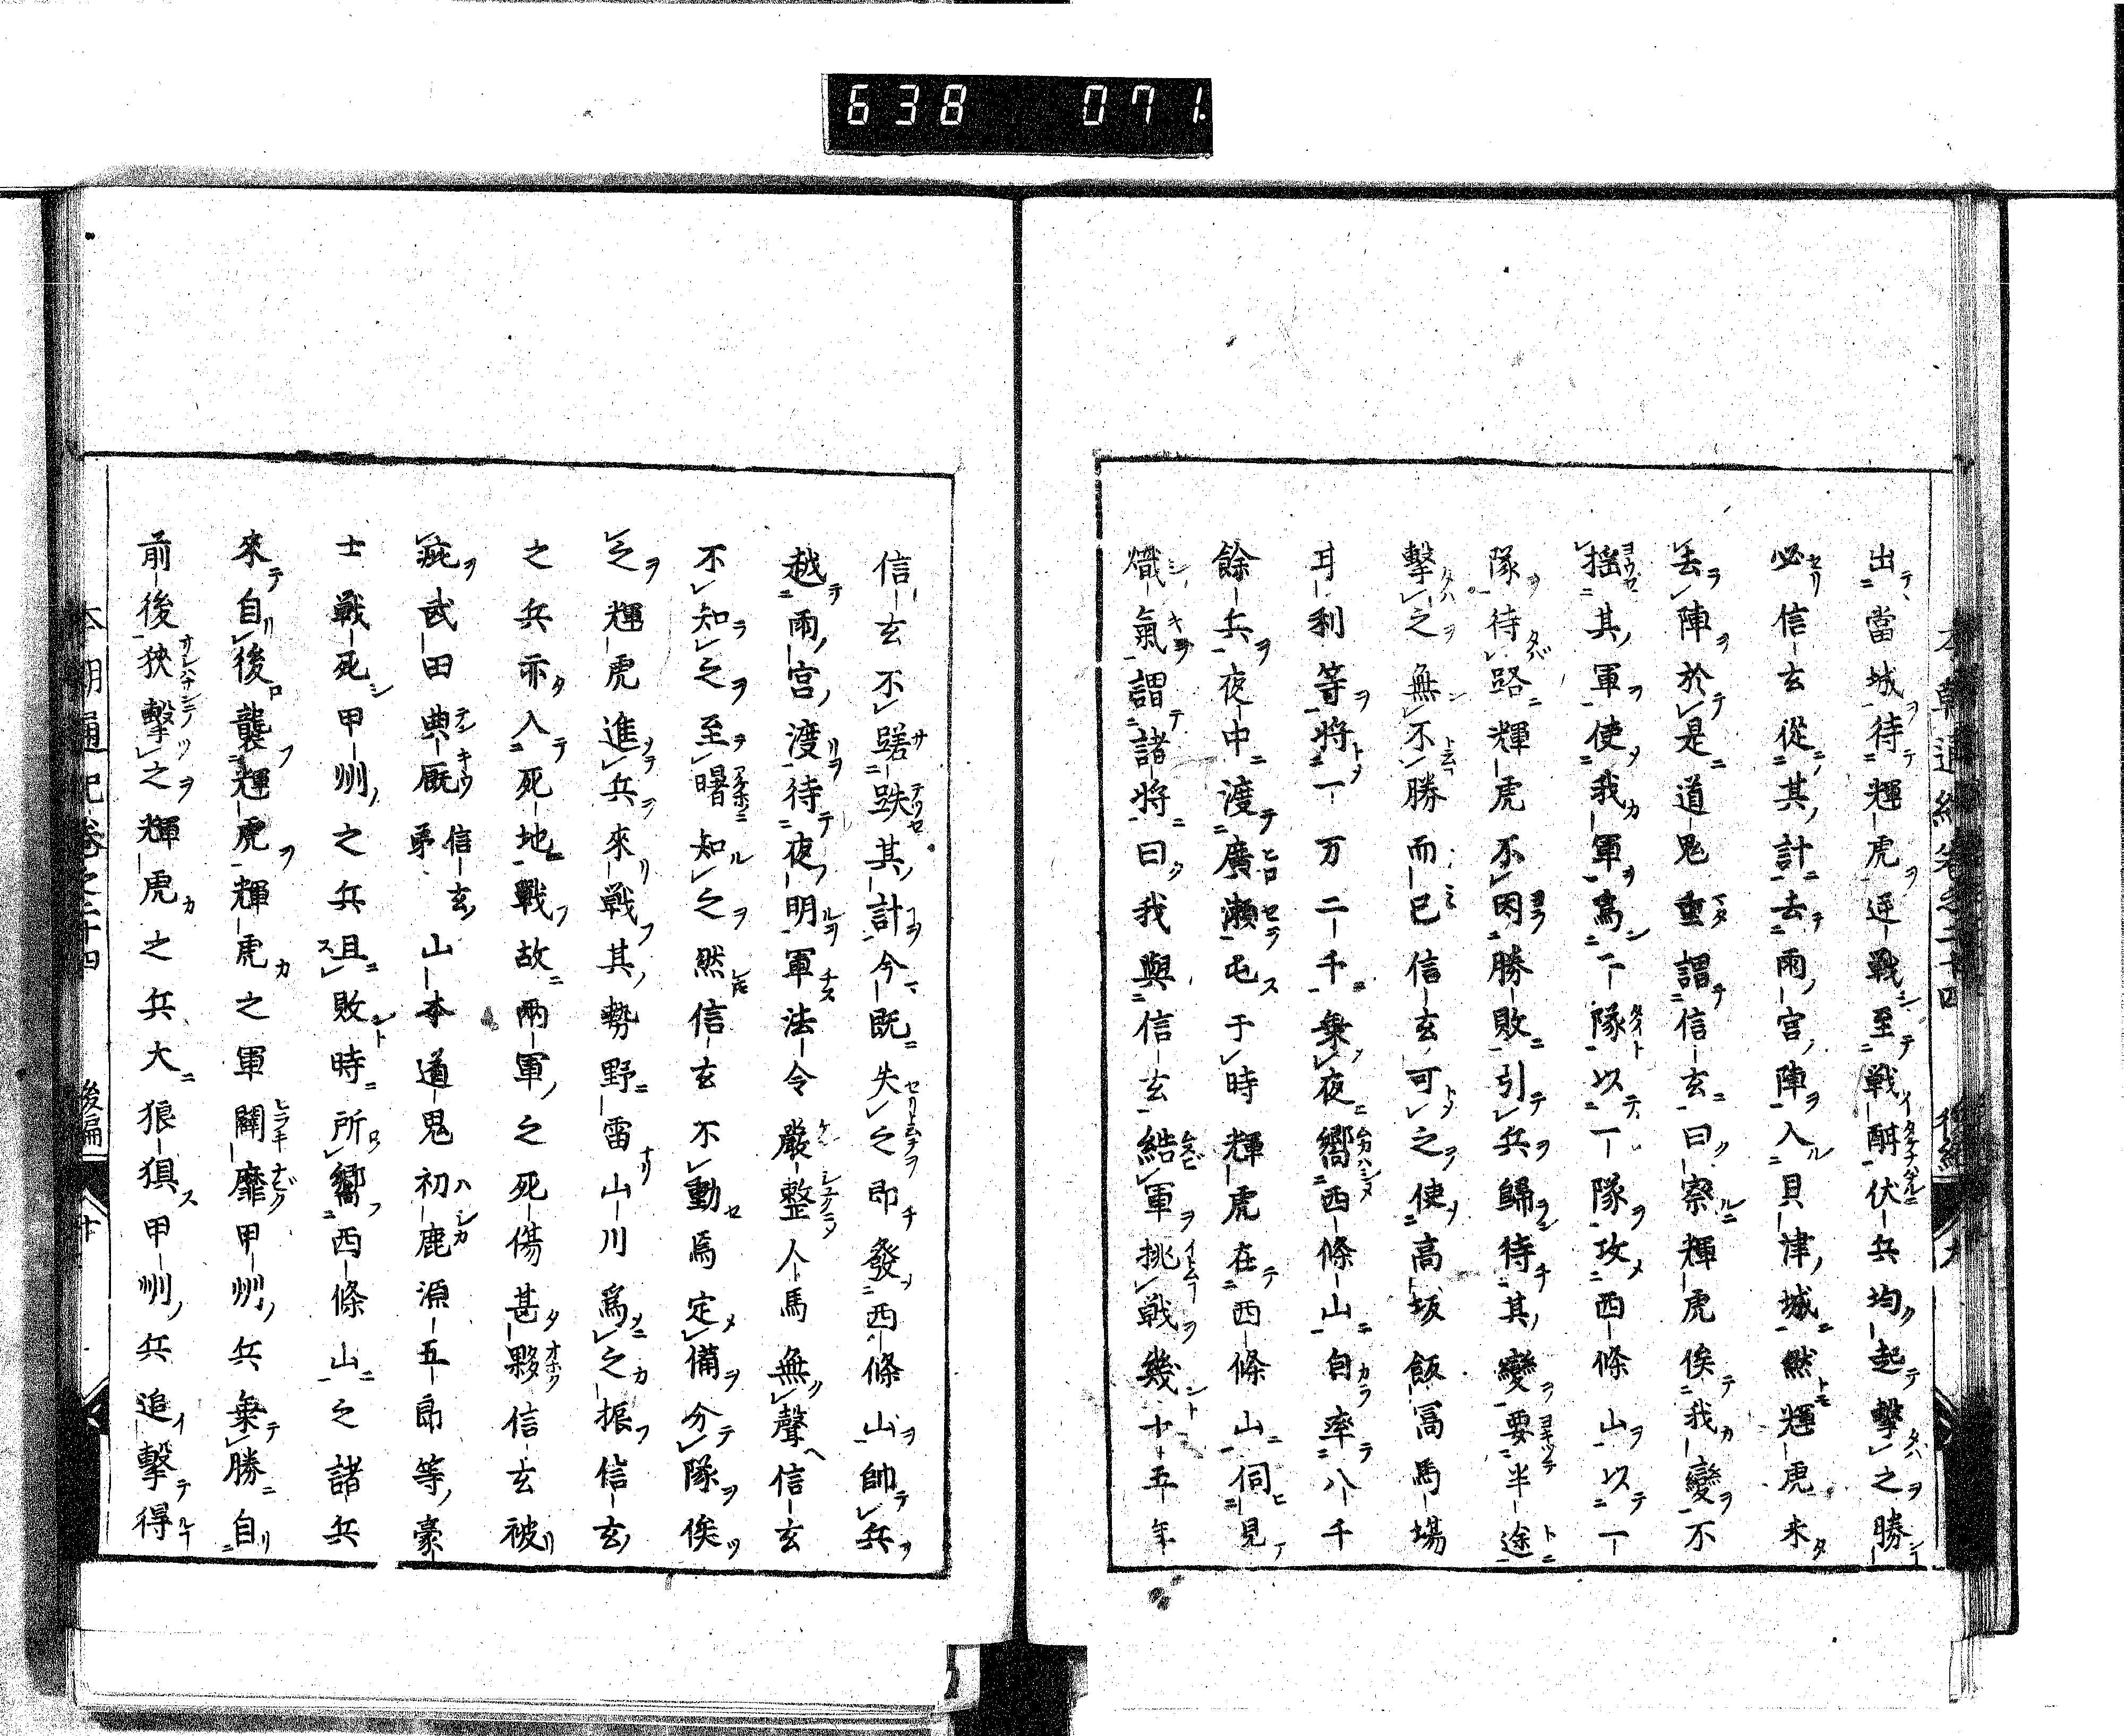 638 071.
本朝通紀卷之二十四 後編
出當城待輝虎逆戰至戰酣伏兵均起擊之勝
必信玄從其計去雨宮陣入貝津城然輝虎未
去陣於是道鬼重謂信玄曰察輝虎俟我變不
搖其軍使我軍爲二隊以一隊攻西條山以一
隊待路輝虎不因勝敗引兵歸待其變要半途
擊之無不勝而已信玄可之使高坂飯冨馬場
耳利等將一万二千乗夜嚮西條山自率八千
餘兵夜中渡廣瀬屯于時輝虎在西條山伺見
熾氣謂諸將曰我與信玄結軍挑戰幾十五年
信玄不蹉跌其計今既失之即發西條山帥兵
越雨宮渡待夜明軍法令嚴整人馬無聲信玄
不知之至曙知之然信玄不動焉定備分隊俟
之輝虎進兵來戰其勢野雷山川爲之振信玄
之兵亦入死地戰故兩軍之死傷甚夥信玄被
疵武田典厩信玄弟山本道鬼初鹿源五郎等豪
士戰死甲州之兵且敗時所嚮西條山之諸兵
來自後襲輝虎輝虎之軍闢靡甲州兵乗勝自
前後狹擊之輝虎之兵大狼狽甲州兵追擊得
本朝通紀卷之二十四 後編